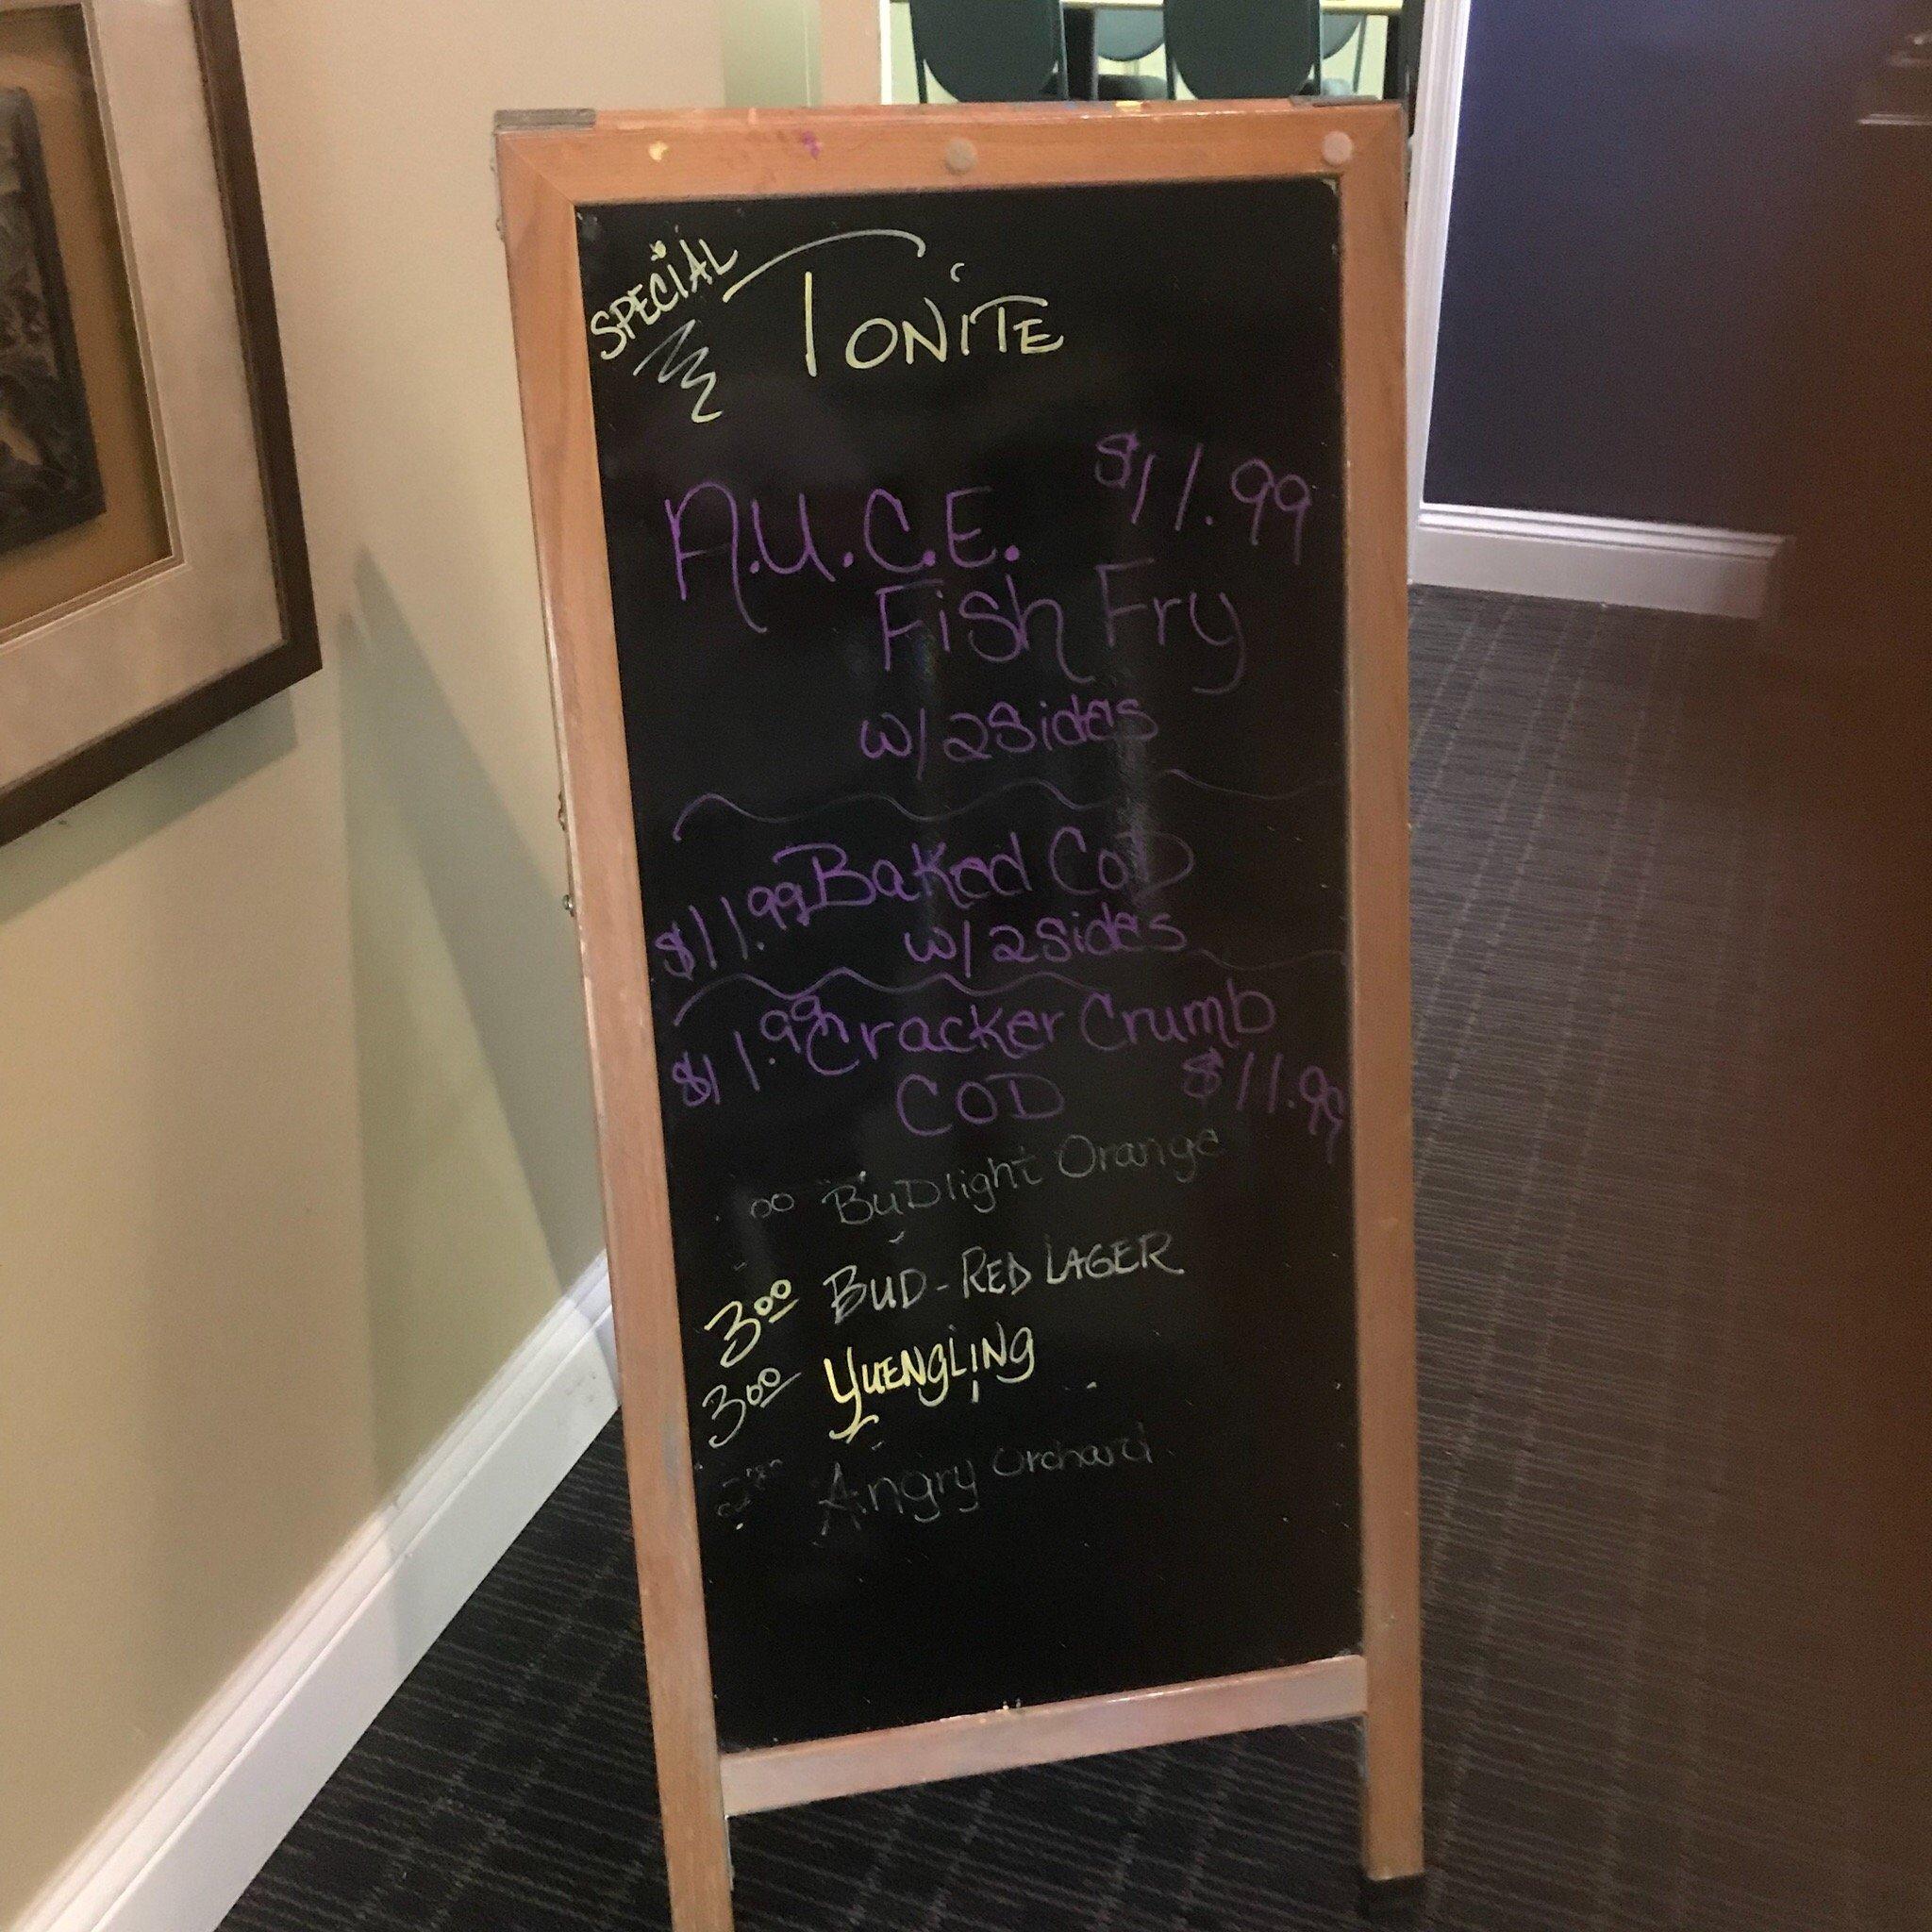 SPECIAL
TONITE
A.U.C.E. $11.99
Fish Fry
w/ 2 Sides
$11.99 Baked COD
w/ 2 sides
$11.99 Cracker Crumb
COD $11.99
00 BuDlight Orange
3.00 BUD-RED LAGER
3.00 YUENGLING
Angry Orchard